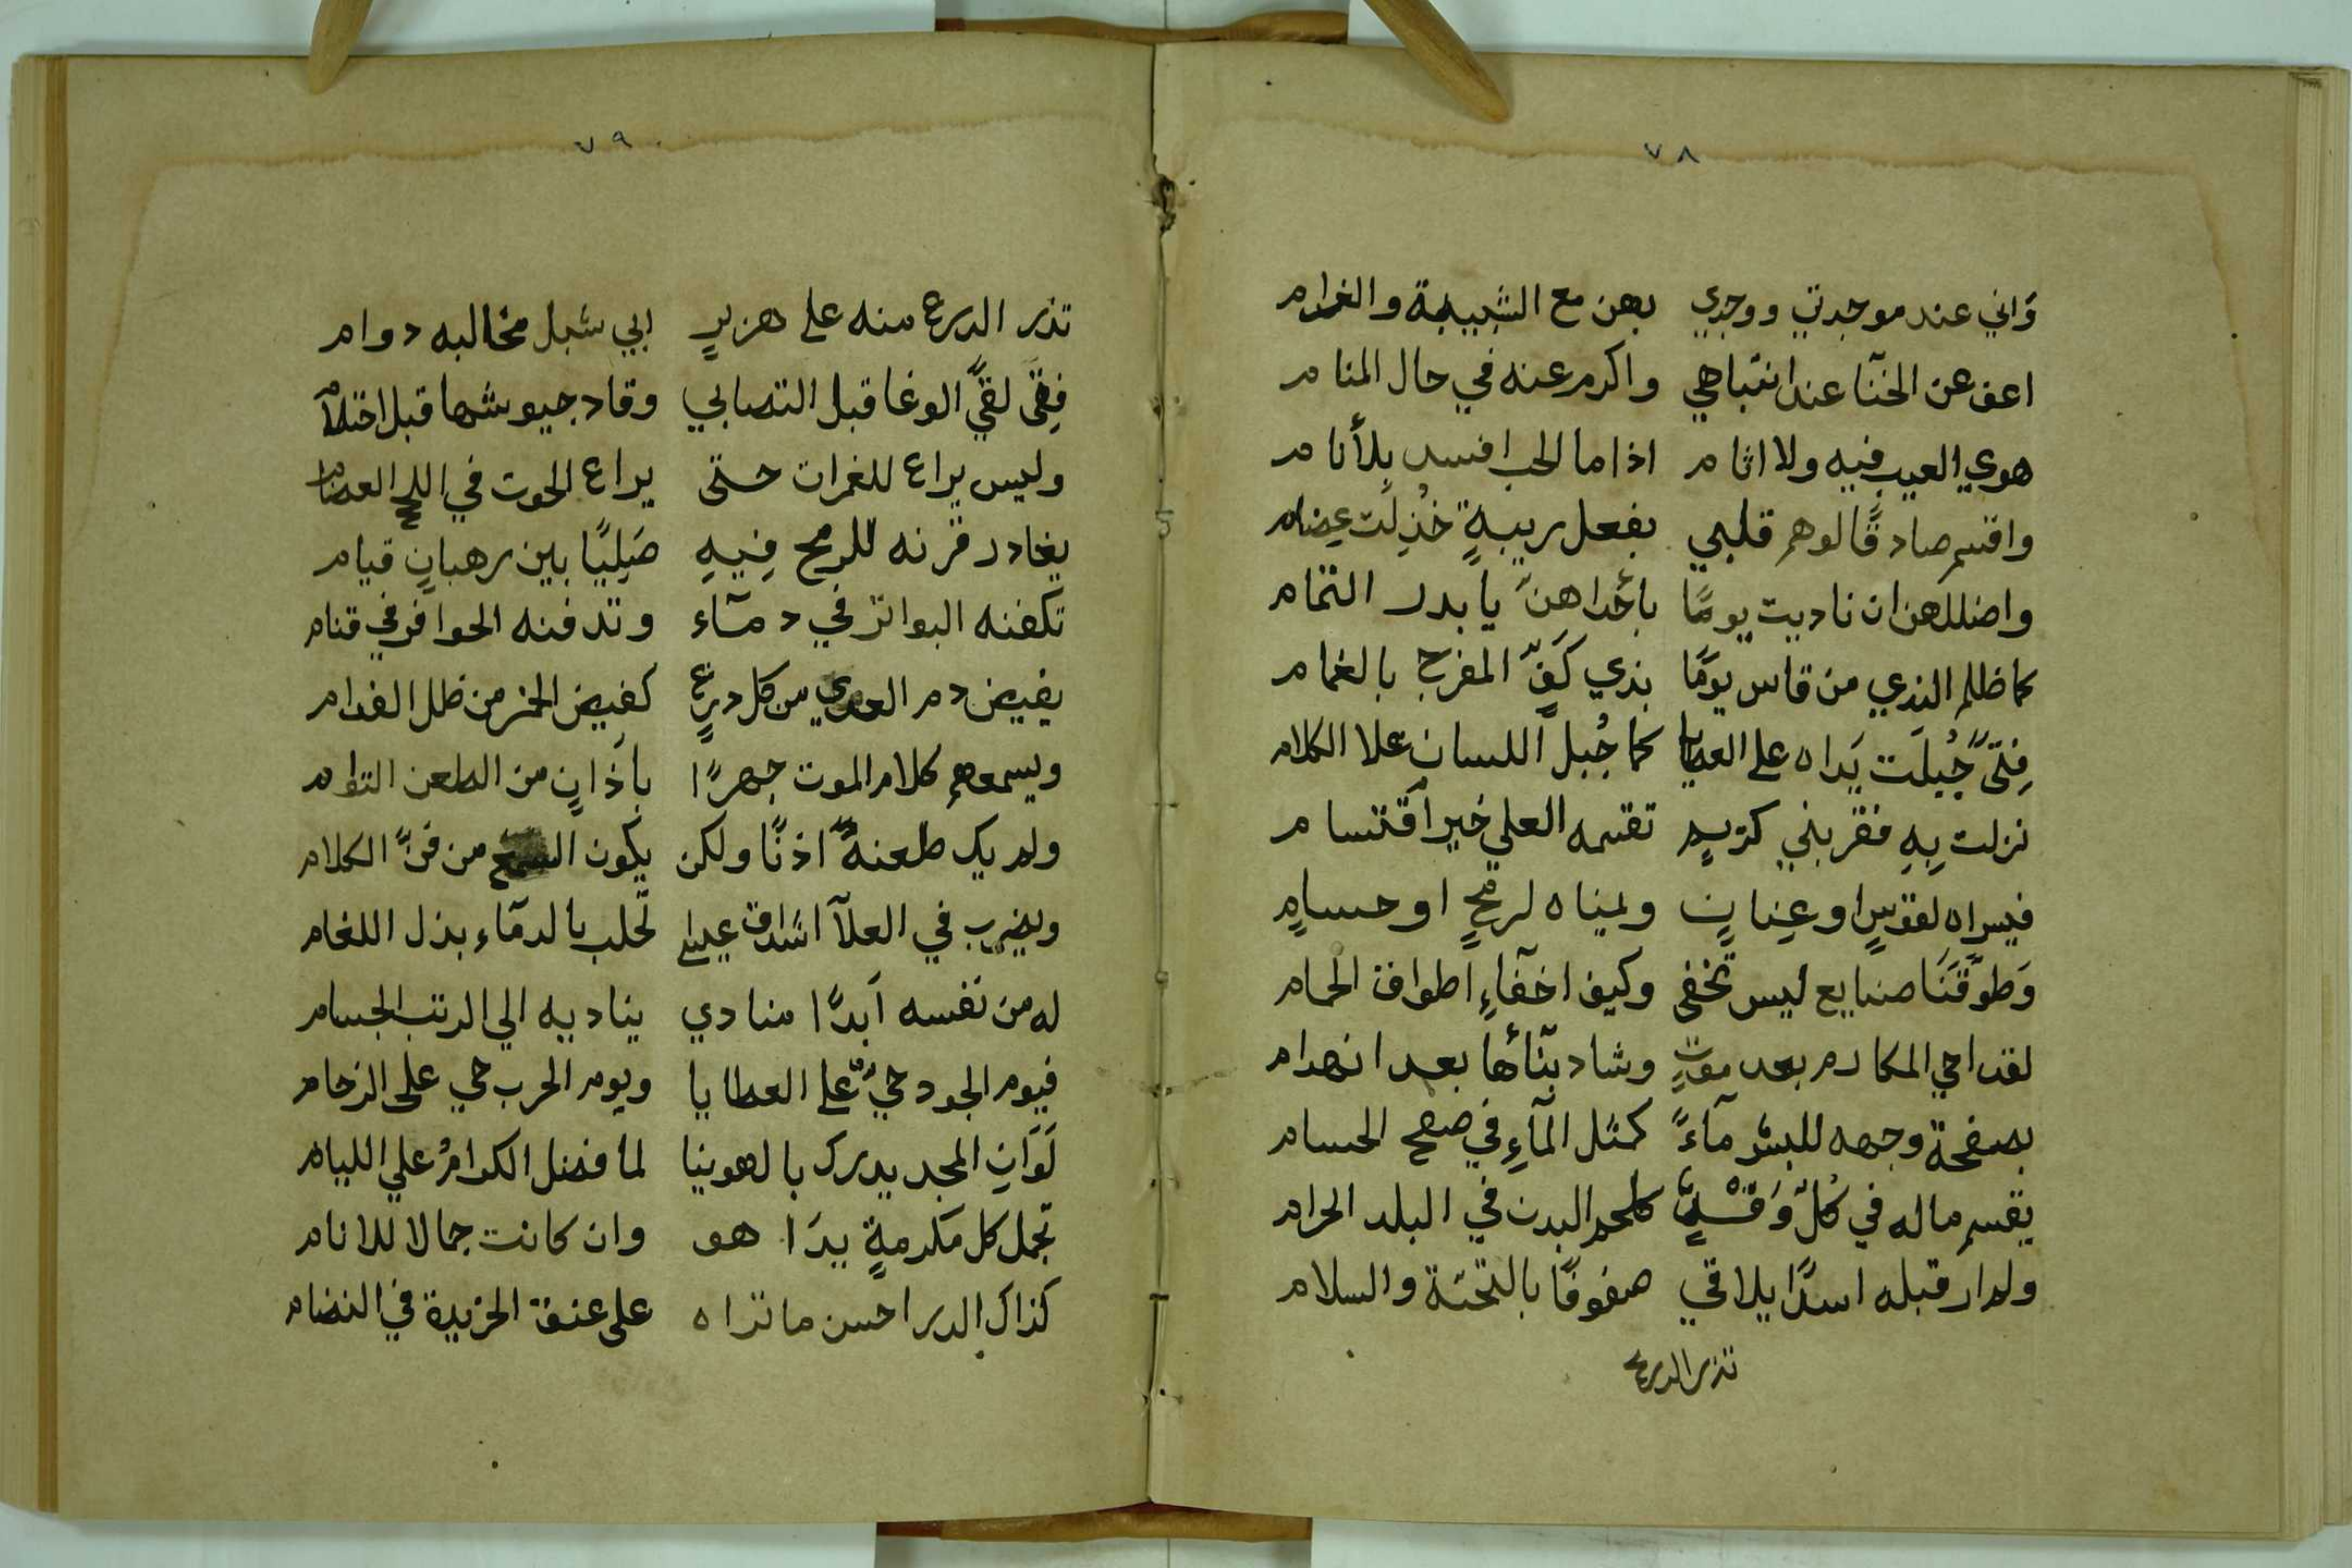 ٧٨
وَاني عند موجدتي ووجدي بهن مع الشبيبة والغرام
اعف عن الخنآ عند انتباهي واكرم عنه في حال المنام
هوي العيب فيه ولا اثام اذا ما الحب افسد بِلأنام
واقسم صادقًا لوهم قلبي بفعل ريبةٍ خُذِلَت عضام
واضللهن ان ناديت يومًا بأخداهنّ يا بدر التمام
كما ظلم الندي من قاس يومًا بذي كَفّ المفرح بالغمام
فِتًى جُبِلَت يَداه على العطايا كما جُبِل اللسان علا الكلام
نزلت بِهِ فقربني كريم تقسمه العلي خير اقتسام
فيسراه لقوسٍ او عِنانٍ ويمناه لرمحٍ او حسامٍ
وَطوّقَنَا صنايع ليس تخفى وكيف اخفآءِ اطواق الحمام
لقد احي المكارم بعد موتٍ وشاد بنآئها بعد انهدام
بصفحة وجهه للبشر مآءً كمثل المآءِ في صفح الحسام
يقسم ماله في كُلّ وَقْتٍ كلحم البدن في البلد الحرام
ولم ار قبله اسدًا يلاقي صفوفًا بالتحيّة والسلام
تذر الدرع
٧٩
تذر الدرع منه على هزبرٍ ابي شبل مخالبه دوام
فتى لقيَ الوغا قبل التصابي وقاد جيوشها قبل احتلآم
وليس يراع للغمرات حتى يراع الحوت في اللج العضام
يغادر قرنه للرمح فِيهِ صَلِيبًا بين رهبانٍ قيام
تكفنه البواتر في دمآء وتدفنه الحوافر في قتام
يفيض دم العدي من كل درعٍ كفيض الخمر من ظلل الفدام
ويسمعهم كلام الموت جهرًا بأذانٍ من الطعن التوام
ولم يك طعنهُ اذنًا ولكن يكون السمع من فنّ الكلام
ويضرب في العلآ اشداق عيسٍ تحلب بالدمآء بذل اللغام
له من نفسه اَبدًا منادي يناديه الي الرتب الجسام
فيوم الجود حيٌّ على العطايا ويوم الحرب حي على الزحام
لَوَانِ المجد يدرك بالهوينا لما فضل الكرامُ علي الليام
تجمل كل مكرمةٍ يدَا هو وان كانت جمالا للانام
كذاك الدر احسن ما تراه على عنق الخريدة في النضام